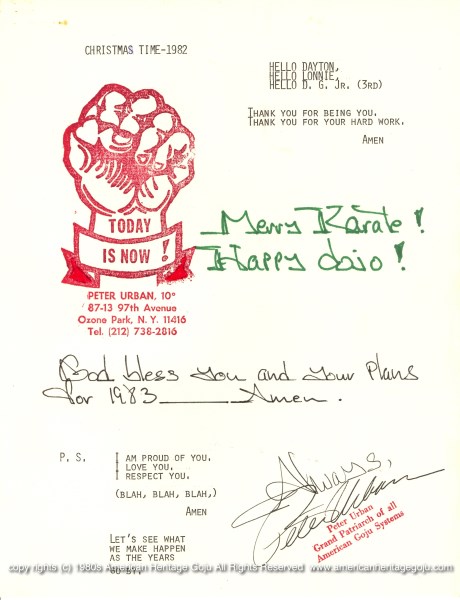 CHRISTMAS TIME-1982
HELLO DAYTON,
HELLO LONNIE,
HELLO D. G. JR. (3RD)
THANK YOU FOR BEING YOU.
THANK YOU FOR YOUR HARD WORK.
AMEN
TODAY
IS NOW !
PETER URBAN, 10°
87-13 97th Avenue
Ozone Park, N. Y. 11416
Tel. (212) 738-2816
Merry Karate!
Happy dojo!
God bless you and your Plans
for 1983 ______ Amen.
P. S. I AM PROUD OF YOU.
I LOVE YOU.
I RESPECT YOU.
(BLAH, BLAH, BLAH,)
AMEN
LET'S SEE WHAT
WE MAKE HAPPEN
AS THE YEARS
Always,
Peter Urban
Peter Urban
Grand Patriarch of all
American Goju Systems
copy rights (c) 1980s American Heritage Goju All Rights Reserved www.americanheritagegoju.com